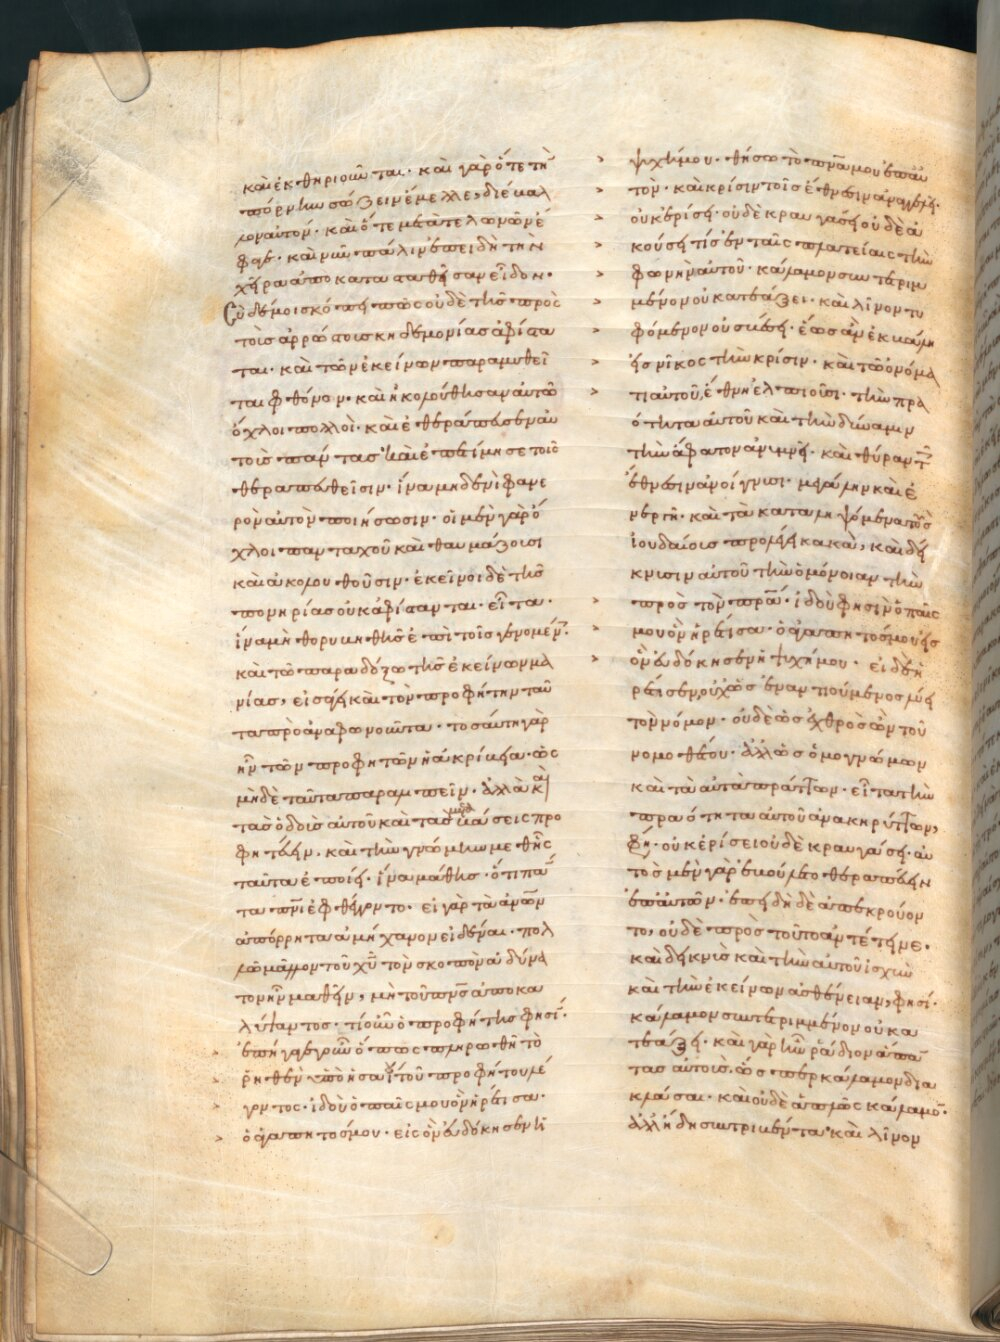 καὶ ἐκθηριοῦνται· καὶ γὰρ ὅτε τὴν
πόρνην σώζειν ἔμελλε, διέβαλ
λον αὐτόν· καὶ ὅτε μετὰ τελωνῶν ἔ
φαγε· καὶ νῦν πάλιν ἐπειδὴ τὴν
χεῖρα ἀποκαταταθεῖσαν εἶδον·
Σὺ δέ μοι σκόπει πῶς οὐδὲ τῆς πρὸς
τοὺς ἀρρώστους κηδεμονίας ἀφίστα
ται· καὶ τῶν ἐκείνων παραμυθεῖ
ται φθόνον· καὶ ἠκολούθησαν αὐτῶ
ὄχλοι πολλοί· καὶ ἐθεράπευσεν αὐ
τοὺς πάντας· καὶ ἐπετίμησε τοῖς
θεραπευθεῖσιν· ἵνα μηδενὶ φανε
ρὸν αὐτὸν ποιήσωσιν· οἱ μὲν γὰρ ὄ
χλοι πανταχοῦ καὶ θαυμάζουσι
καὶ ἀκολουθοῦσιν· ἐκεῖνοι δὲ τῆς
πονηρίας οὐκ ἀφίστανται· εἶτα
ἵνα μὴ θορυβηθῆς ἐπὶ τοῖς γενομέν·
καὶ τῶ παραδόξω τῆς ἐκείνων μα
νίας, εἰσάγει καὶ τὸν προφήτην ταῦ
τα προαναφωνοῦντα· τοσαύτη γὰρ
ἦν τῶν προφητῶν ἡ ἀκρίβεια· ὡς
μηδὲ ταῦτα παραλιπεῖν· ἀλλὰ καὶ
τὰς ὁδοὺς αὐτοῦ καὶ τὰς μεταβάσεις προ
φητεύειν, καὶ τὴν γνώμην μεθ' ἧς
ταῦτα ἐποίει· ἵνα μάθης· ὅτι πάν
τα πνι ἐφθέγγοντο· εἰ γὰρ τὰ ἀνων
ἀπόρρητα ἀμήχανον εἰδέναι· πολ
λῶ μᾶλλον τοῦ χυ τὸν σκοπὸν ἀδύνα
τον ἦν μαθεῖν, μὴ τοῦ πνς ἀποκα
λύψαντος· τί οὖν ὁ προφήτης φησί·
ἐπήγαγεν ὅπως πληρωθῆ τὸ
ῥηθὲν ὑπὸ ἡσαΐου τοῦ προφήτου λέ
γοντος· ἰδοὺ ὁ παῖς μου ὃν ἡρέτισα·
ὁ ἀγαπητός μου· εἰς ὃν εὐδόκησεν ἡ
ψυχή μου· θήσω τὸ πνα μου ἐπ' αὐ
τόν· καὶ κρίσιν τοῖς ἔθνεσιν ἀπαγγελεῖ·
οὐκ ἐρίσει· οὐδὲ κραυγάσει οὐδὲ ἀ
κούσει τίς ἐν ταῖς πλατείαις τὴν
φωνὴν αὐτοῦ· κάλαμον συντετριμ
μένον οὐ κατεάξει· καὶ λίνον τυ
φόμενον οὐ σβέσει· ἕως ἂν ἐκβάλη
εἰς νῖκος τὴν κρίσιν· καὶ τῶ ὀνόμα
τι αὐτοῦ, ἔθνη ἐλπιοῦσι· τὴν πρα
ότητα αὐτοῦ καὶ τὴν δύναμιν
τὴν ἄφατον ἀνυμνεῖ· καὶ θύραν τοῖς
ἔθνεσιν ἀνοίγνυσι· μεγάλην καὶ ἐ
νεργῆ· καὶ τὰ καταληψόμενα τοὺς
ἰουδαίους προλέγει κακά, καὶ δεί
κνυσιν αὐτοῦ τὴν ὁμόνοιαν τὴν
πρὸς τὸν πρα· ἰδοὺ φησὶν ὁ παῖς
μου ὃν ἡρέτισα· ὁ ἀγαπητός μου εἰς
ὃν εὐδόκησεν ἡ ψυχή μου· εἰ δὲ ἡ
ρέτισεν, οὐχ ὡς ἐναντιούμενος λύει
τὸν νόμον· οὐδὲ ὡς ἐχθρὸς ὢν τοῦ
νομοθέτου· ἀλλ' ὡς ὁμογνώμων
καὶ τὰ αὐτὰ πράττων· εἶτα τὴν
πραότητα αὐτοῦ ἀνακηρύττων,
φη· οὐκ ἐρίσει οὐδὲ κραυγάσει· αὐ
τὸς μὲν γὰρ ἐβούλετο θεραπεύειν
ἐπ' αὐτῶν· ἐπειδὴ δὲ ἀπεκρούον
το, οὐδὲ πρὸς τοῦτο ἀντέτεινε·
καὶ δεικνὺς καὶ τὴν αὐτοῦ ἰσχὺν
καὶ τὴν ἐκείνων ἀσθένειαν, φησί·
κάλαμον συντετριμμένον οὐ κα
τεάξει· καὶ γὰρ ἦν ῥάδιον ἅπαν
τας αὐτοὺς ὥσπερ κάλαμον δια
κλάσαι· καὶ οὐδὲ ἁπλῶς κάλαμον·
ἀλλ' ἤδη συντριβέντα· καὶ λίνον